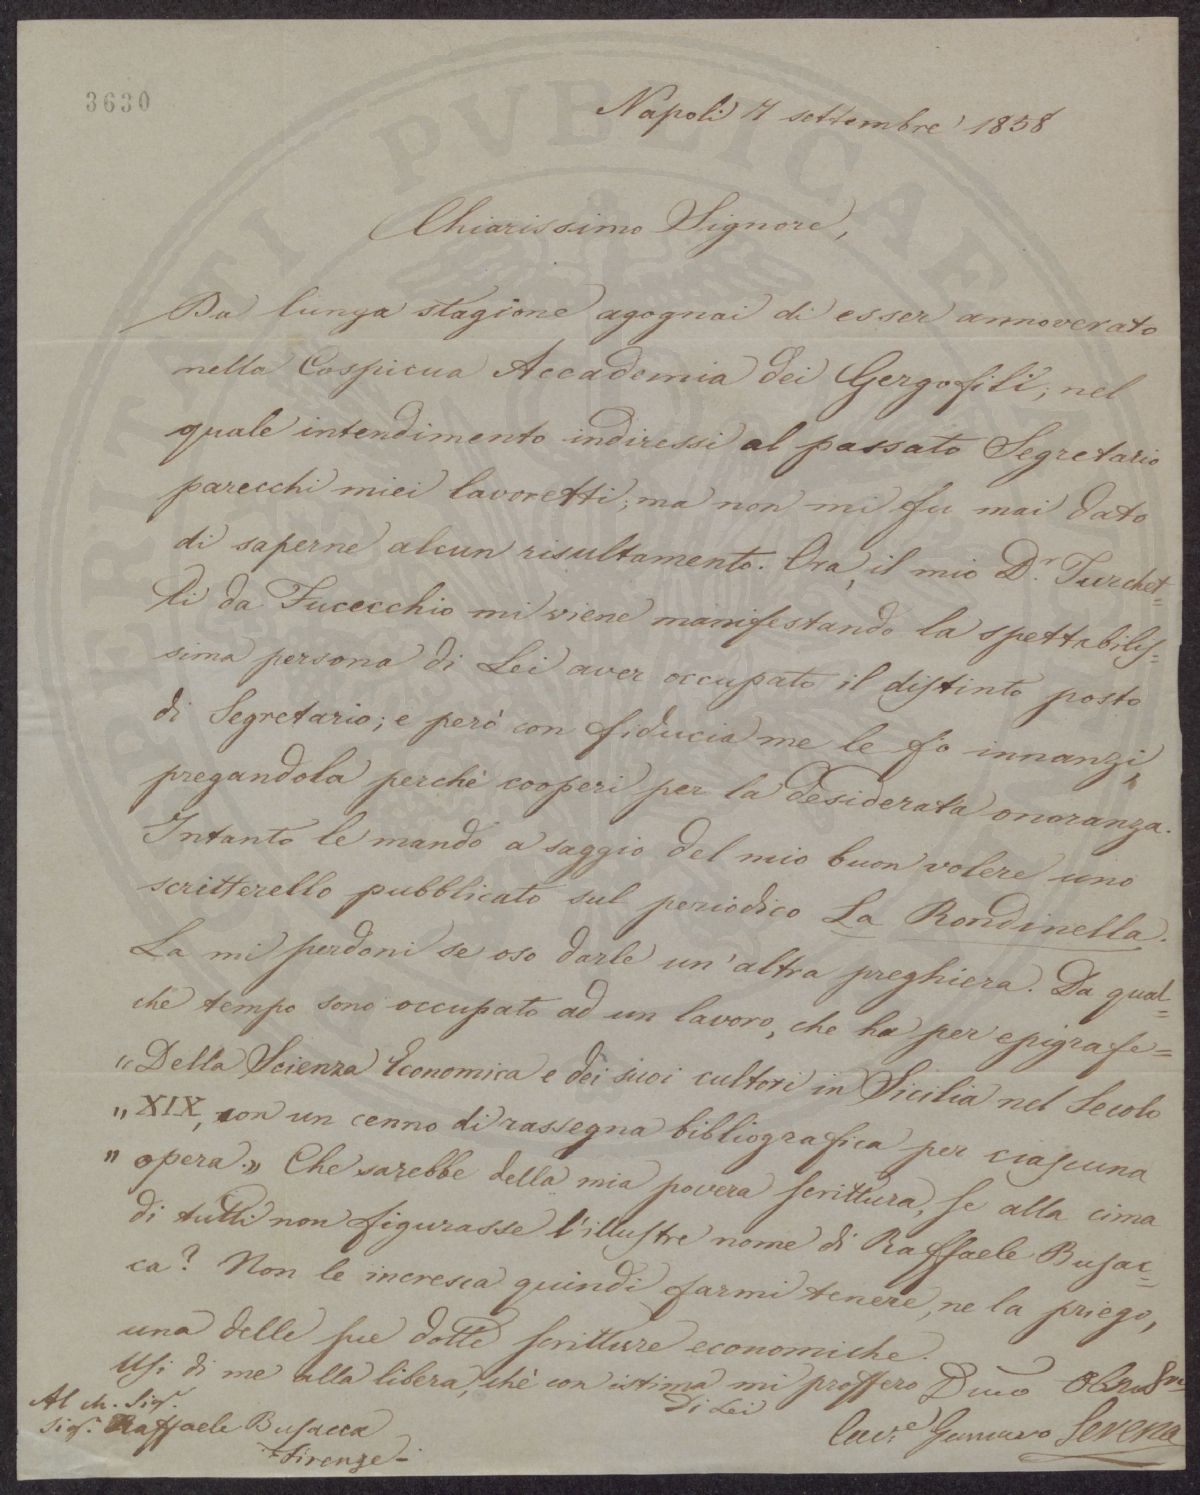 3630
Napoli 7 settembre 1858
Chiarissimo Signore,
Da lunga stagione agognai di esser annoverato
nella Cospicua Accademia dei Gergofili; nel
quale intendimento indiressi al passato Segretario
parecchi miei lavoretti; ma non mi fu mai dato
di saperne alcun risultamento. Ora, il mio D.r Turchet=
ti da Fucecchio mi viene manifestando la spettabilis=
sima persona di Lei aver occupato il distinto posto
di Segretario; e però con fiducia me le fo innanzi,
pregandola perchè cooperi per la desiderata onoranza.
Intanto le mando a saggio del mio buon volere uno
scritterello pubblicato sul periodico La Rondinella.
La mi perdoni se oso darle un'altra preghiera. Da qual=
che tempo sono occupato ad un lavoro, che ha per epigrafe=
"Della Scienza Economica e dei suoi cultori in Sicilia nel Secolo
" XIX, con un cenno di rassegna bibliografica per ciascuna
" opera." Che sarebbe della mia povera scrittura, se alla cima
di tutti non figurasse l'illustre nome di Raffaele Busac=
ca? Non le incresca quindi farmi tenere, ne la priego,
una delle sue dotte scritture economiche.
Usi di me alla libera, chè con istima mi proffero
Di Lei
Dmo Obmo Sre
Cav.e Gennaro Serena
Al ch. Sig.
Sig. Raffaele Busacca
Firenze